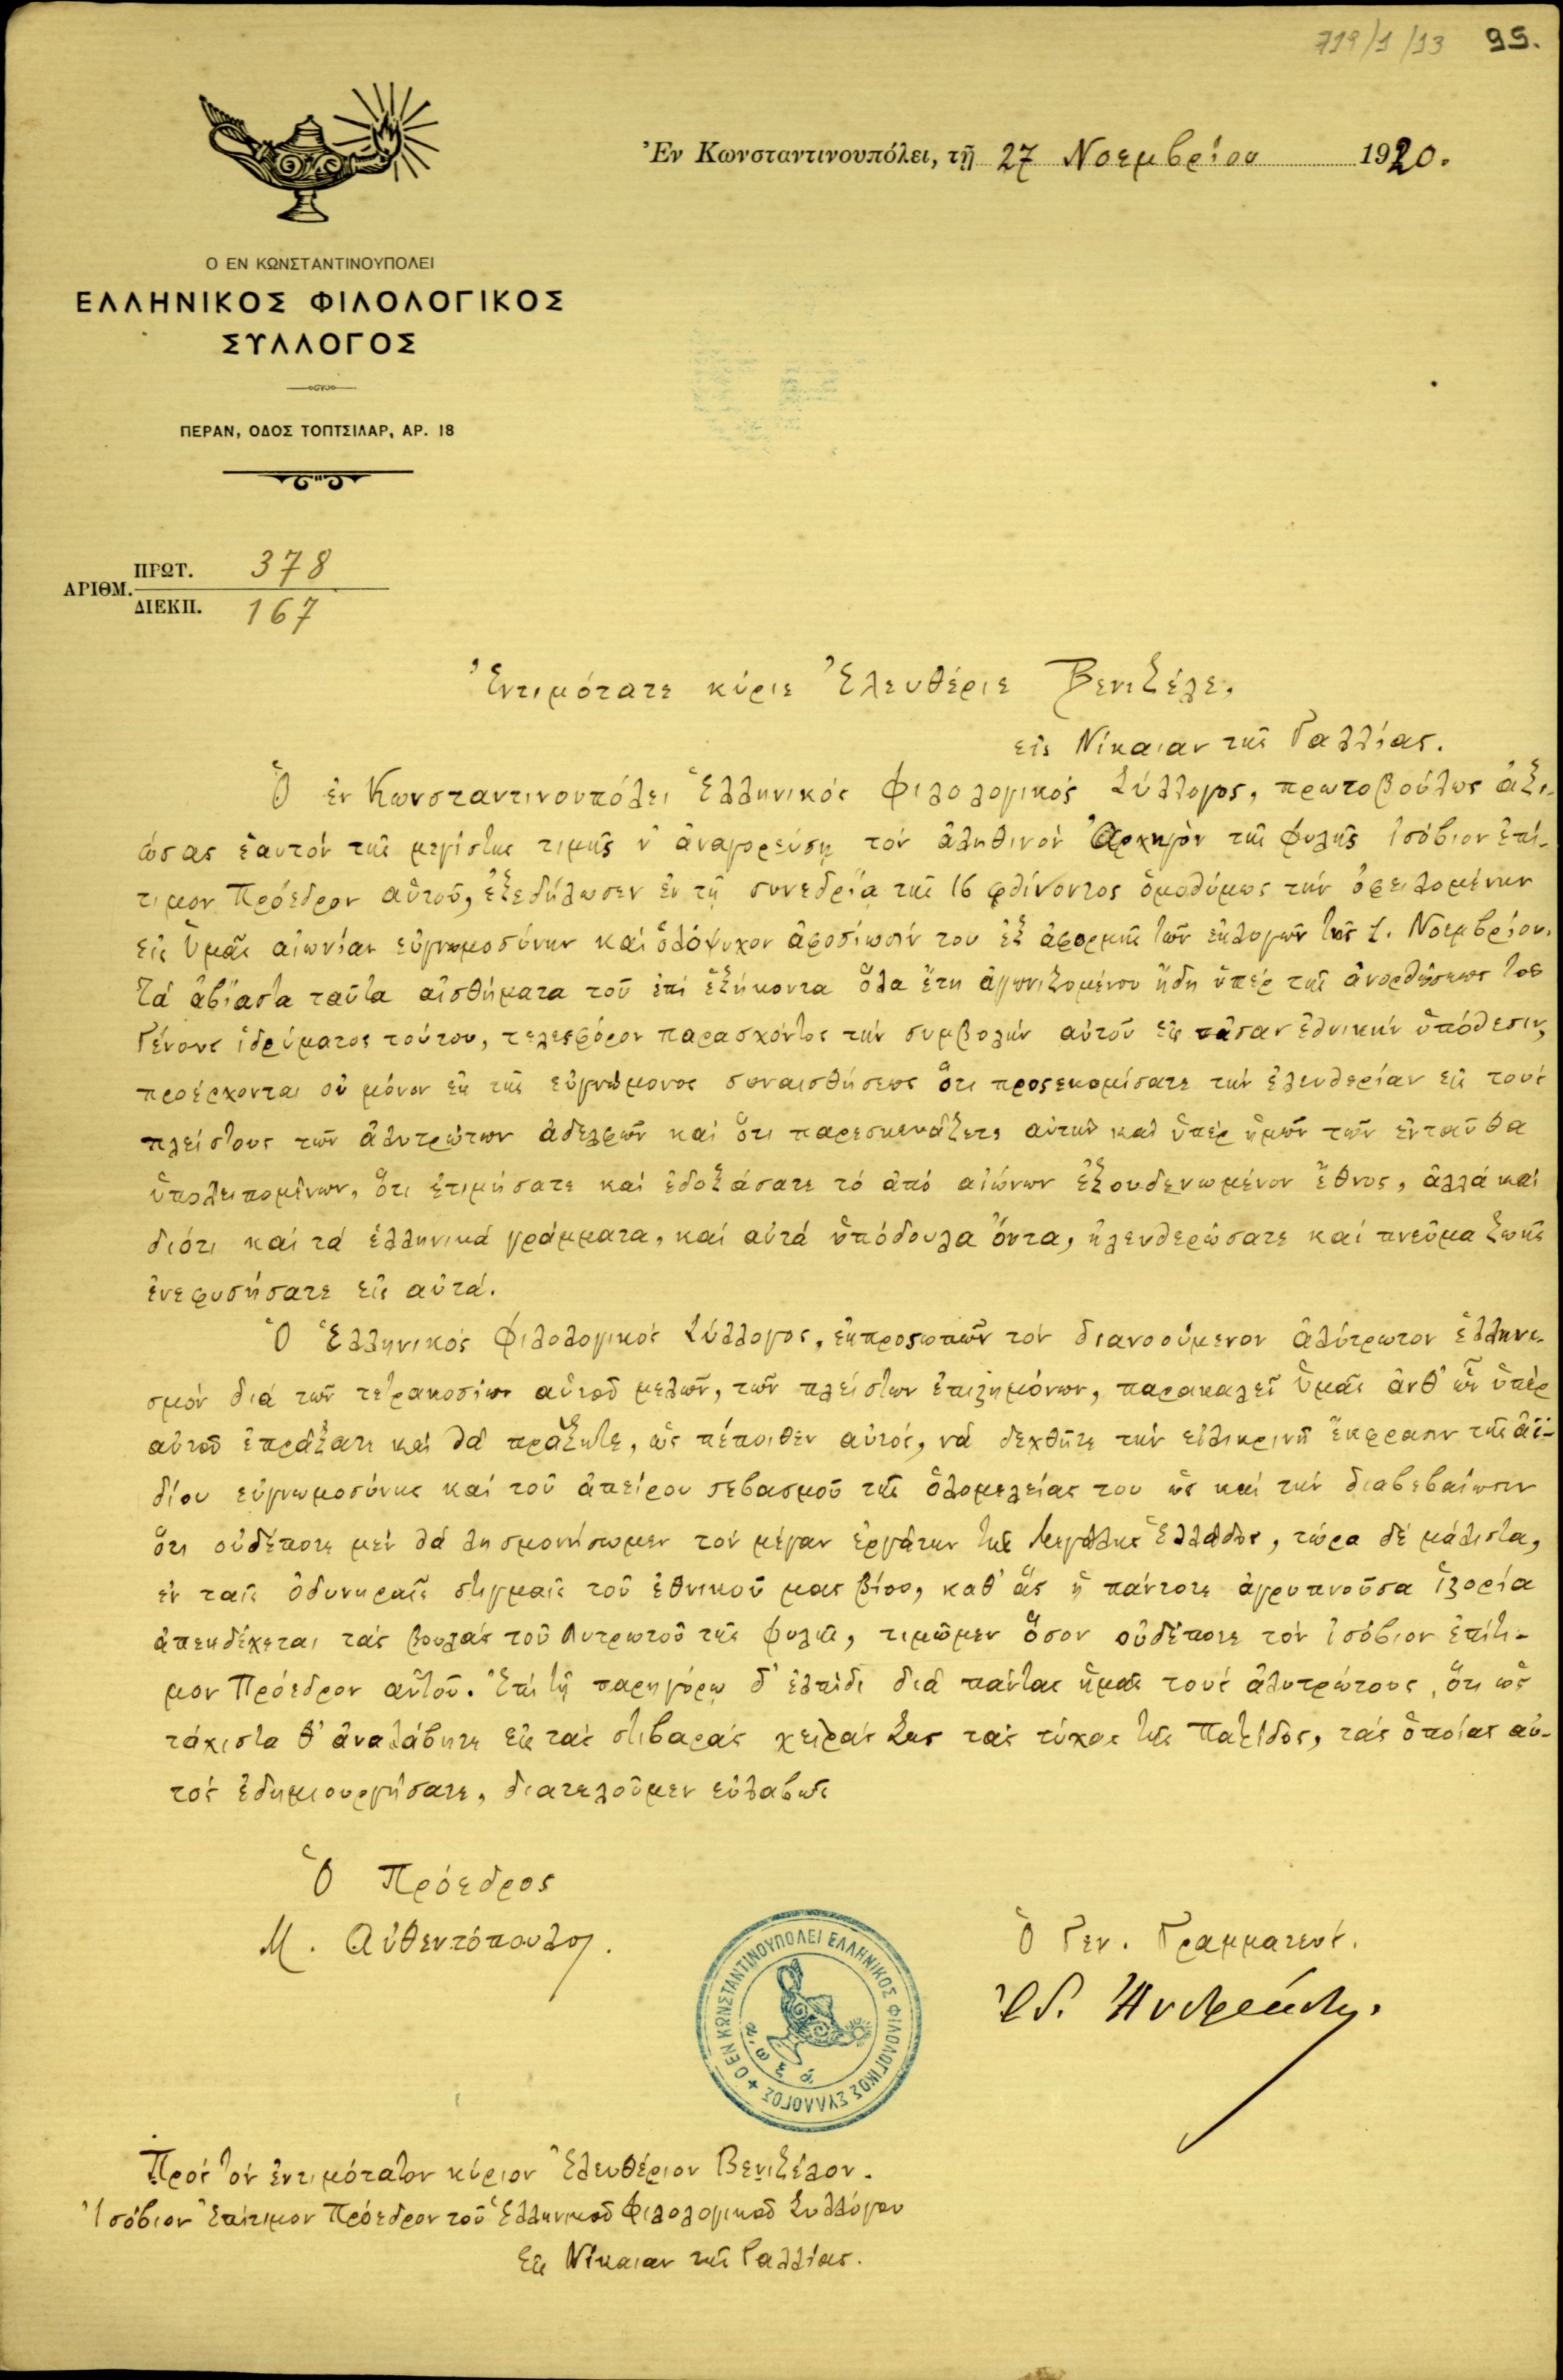 719/1/13 95.
Ἐν Κωνσταντινουπόλει, τῇ 27 Νοεμβρίου 1920.
Ο ΕΝ ΚΩΝΣΤΑΝΤΙΝΟΥΠΟΛΕΙ
ΕΛΛΗΝΙΚΟΣ ΦΙΛΟΛΟΓΙΚΟΣ
ΣΥΛΛΟΓΟΣ
ΠΕΡΑΝ, ΟΔΟΣ ΤΟΠΤΣΙΛΑΡ, ΑΡ. 18
ΑΡΙΘΜ. ΠΡΩΤ. 378
ΔΙΕΚΠ. 167
Ἐντιμότατε κύριε Ἐλευθέριε Βενιζέλε,
εἰς Νίκαιαν τῆς Γαλλίας.
Ὁ ἐν Κωνσταντινουπόλει Ἑλληνικός Φιλολογικός Σύλλογος, πρωτοβούλως ἀξι-
ώσας ἑαυτόν τῆς μεγίστης τιμῆς ν' ἀναγορεύσῃ τόν ἀληθινόν Ἀρχηγόν τῆς φυλῆς ἰσόβιον ἐπί-
τιμον Πρόεδρον αὐτοῦ, ἐξεδήλωσεν ἐν τῇ συνεδρίᾳ τῆς 16 φθίνοντος ὁμοθύμως τήν ὀφειλομένην
εἰς ὑμᾶς αἰωνίαν εὐγνωμοσύνην καί ὁλόψυχον ἀφοσίωσίν του ἐξ ἀφορμῆς τῶν ἐκλογῶν τῆς 1. Νοεμβρίου.
Τά ἀβίαστα ταῦτα αἰσθήματα τοῦ ἐπί ἑξήκοντα ὅλα ἔτη ἀγωνιζομένου ἤδη ὑπέρ τῆς ἀνορθώσεως τοῦ
Γένους ἱδρύματος τούτου, τελεσφόρον παρασχόντος τήν συμβολήν αὐτοῦ εἰς πᾶσαν ἐθνικήν ὑπόθεσιν,
προέρχονται οὐ μόνον ἐκ τῆς εὐγνώμονος συναισθήσεως ὅτι προσεκομίσατε τήν ἐλευθερίαν εἰς τούς
πλείστους τῶν ἀλυτρώτων ἀδελφῶν καί ὅτι παρεσκευάζετε αὐτήν καί ὑπέρ ἡμῶν τῶν ἐνταῦθα
ὑπολειπομένων, ὅτι ἐτιμήσατε καί ἐδοξάσατε τό ἀπό αἰώνων ἐξουδενωμένον ἔθνος, ἀλλά καί
διότι καί τά ἑλληνικά γράμματα, καί αὐτά ὑπόδουλα ὄντα, ἠλευθερώσατε καί πνεῦμα ζωῆς
ἐνεφυσήσατε εἰς αὐτά.
Ὁ Ἑλληνικός Φιλολογικός Σύλλογος, ἐκπροσωπῶν τόν διανοούμενον ἀλύτρωτον ἑλληνι-
σμόν διά τῶν τετρακοσίων αὐτοῦ μελῶν, τῶν πλείστων ἐπιστημόνων, παρακαλεῖ ὑμᾶς ἀνθ' ὧν ὑπέρ
αὐτοῦ ἐπράξατε καί θά πράξητε, ὡς πέποιθεν αὐτός, νά δεχθῆτε τήν εἰλικρινῆ ἔκφρασιν τῆς ἀϊ-
δίου εὐγνωμοσύνης καί τοῦ ἀπείρου σεβασμοῦ τῆς ὁλομελείας του ὡς καί τήν διαβεβαίωσιν
ὅτι οὐδέποτε μέν θά λησμονήσωμεν τόν μέγαν ἐργάτην τῆς Μεγάλης Ἑλλάδος, τώρα δέ μάλιστα,
ἐν ταῖς ὀδυνηραῖς στιγμαῖς τοῦ ἐθνικοῦ μας βίου, καθ' ἅς ἡ πάντοτε ἀγρυπνοῦσα ἱστορία
ἀπεκδέχεται τάς βουλάς τοῦ Λυτρωτοῦ τῆς φυλῆς, τιμῶμεν ὅσον οὐδέποτε τόν ἰσόβιον ἐπίτι-
μον Πρόεδρον αὐτοῦ. Ἐπί τῇ παρηγόρῳ δ' ἐλπίδι διά πάντας ἡμᾶς τούς ἀλυτρώτους, ὅτι ὡς
τάχιστα θ' ἀναλάβητε εἰς τάς στιβαράς χεῖράς Σας τάς τύχας τῆς Πατρίδος, τάς ὁποίας αὐ-
τός ἐδημιουργήσατε, διατελοῦμεν εὐλαβῶς
Ὁ Πρόεδρος
Μ. Αὐθεντόπουλος.
Ὁ Γεν. Γραμματεύς.
Ο ΕΝ ΚΩΝΣΤΑΝΤΙΝΟΥΠΟΛΕΙ ΕΛΛΗΝΙΚΟΣ ΦΙΛΟΛΟΓΙΚΟΣ ΣΥΛΛΟΓΟΣ
Πρός τόν ἐντιμότατον κύριον Ἐλευθέριον Βενιζέλον.
Ἰσόβιον Ἐπίτιμον Πρόεδρον τοῦ Ἑλληνικοῦ Φιλολογικοῦ Συλλόγου
Εἰς Νίκαιαν τῆς Γαλλίας.